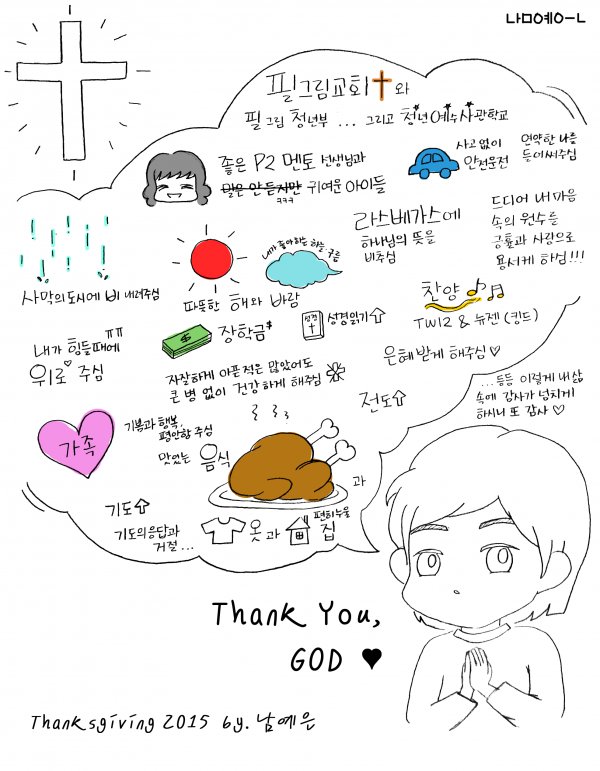 나모예으ㄴ
필그림교회와
필그림 청년부 ... 그리고 청년예수사관학교
좋은 P2 멘토 선생님과
말은 안 듣지만 귀여운 아이들
ㅋㅋㅋ
사고없이
안전운전
연약한 나를
들어써주심
사막의 도시에 비 내려주심
내가 좋아하는 하늘, 구름
따뜻한 해와 바람
라스베가스에
하나님의 뜻을
비추심
드디어 내 마음
속의 원수를
긍휼과 사랑으로
용서케 하심!!!
내가 힘들때에 ㅠㅠ
위로♡ 주심
$
장학금$
성경
성경읽기⇧
찬양
TWIZ & 뉴젠 (킹드)
은혜받게 해주심♡
자잘하게 아픈적은 많았어도
큰 병 없이 건강하게 해주심
전도⇧
...등등 이렇게 내 삶
속에 감사가 넘치게
하시니 또 감사♡
가족
기쁨과 행복,
평안함 주심
맛있는 음식
과
기도⇧
기도의 응답과
거절...
옷과
편히누울
집
Thank You,
GOD ♥
Thanksgiving 2015 by. 남예은